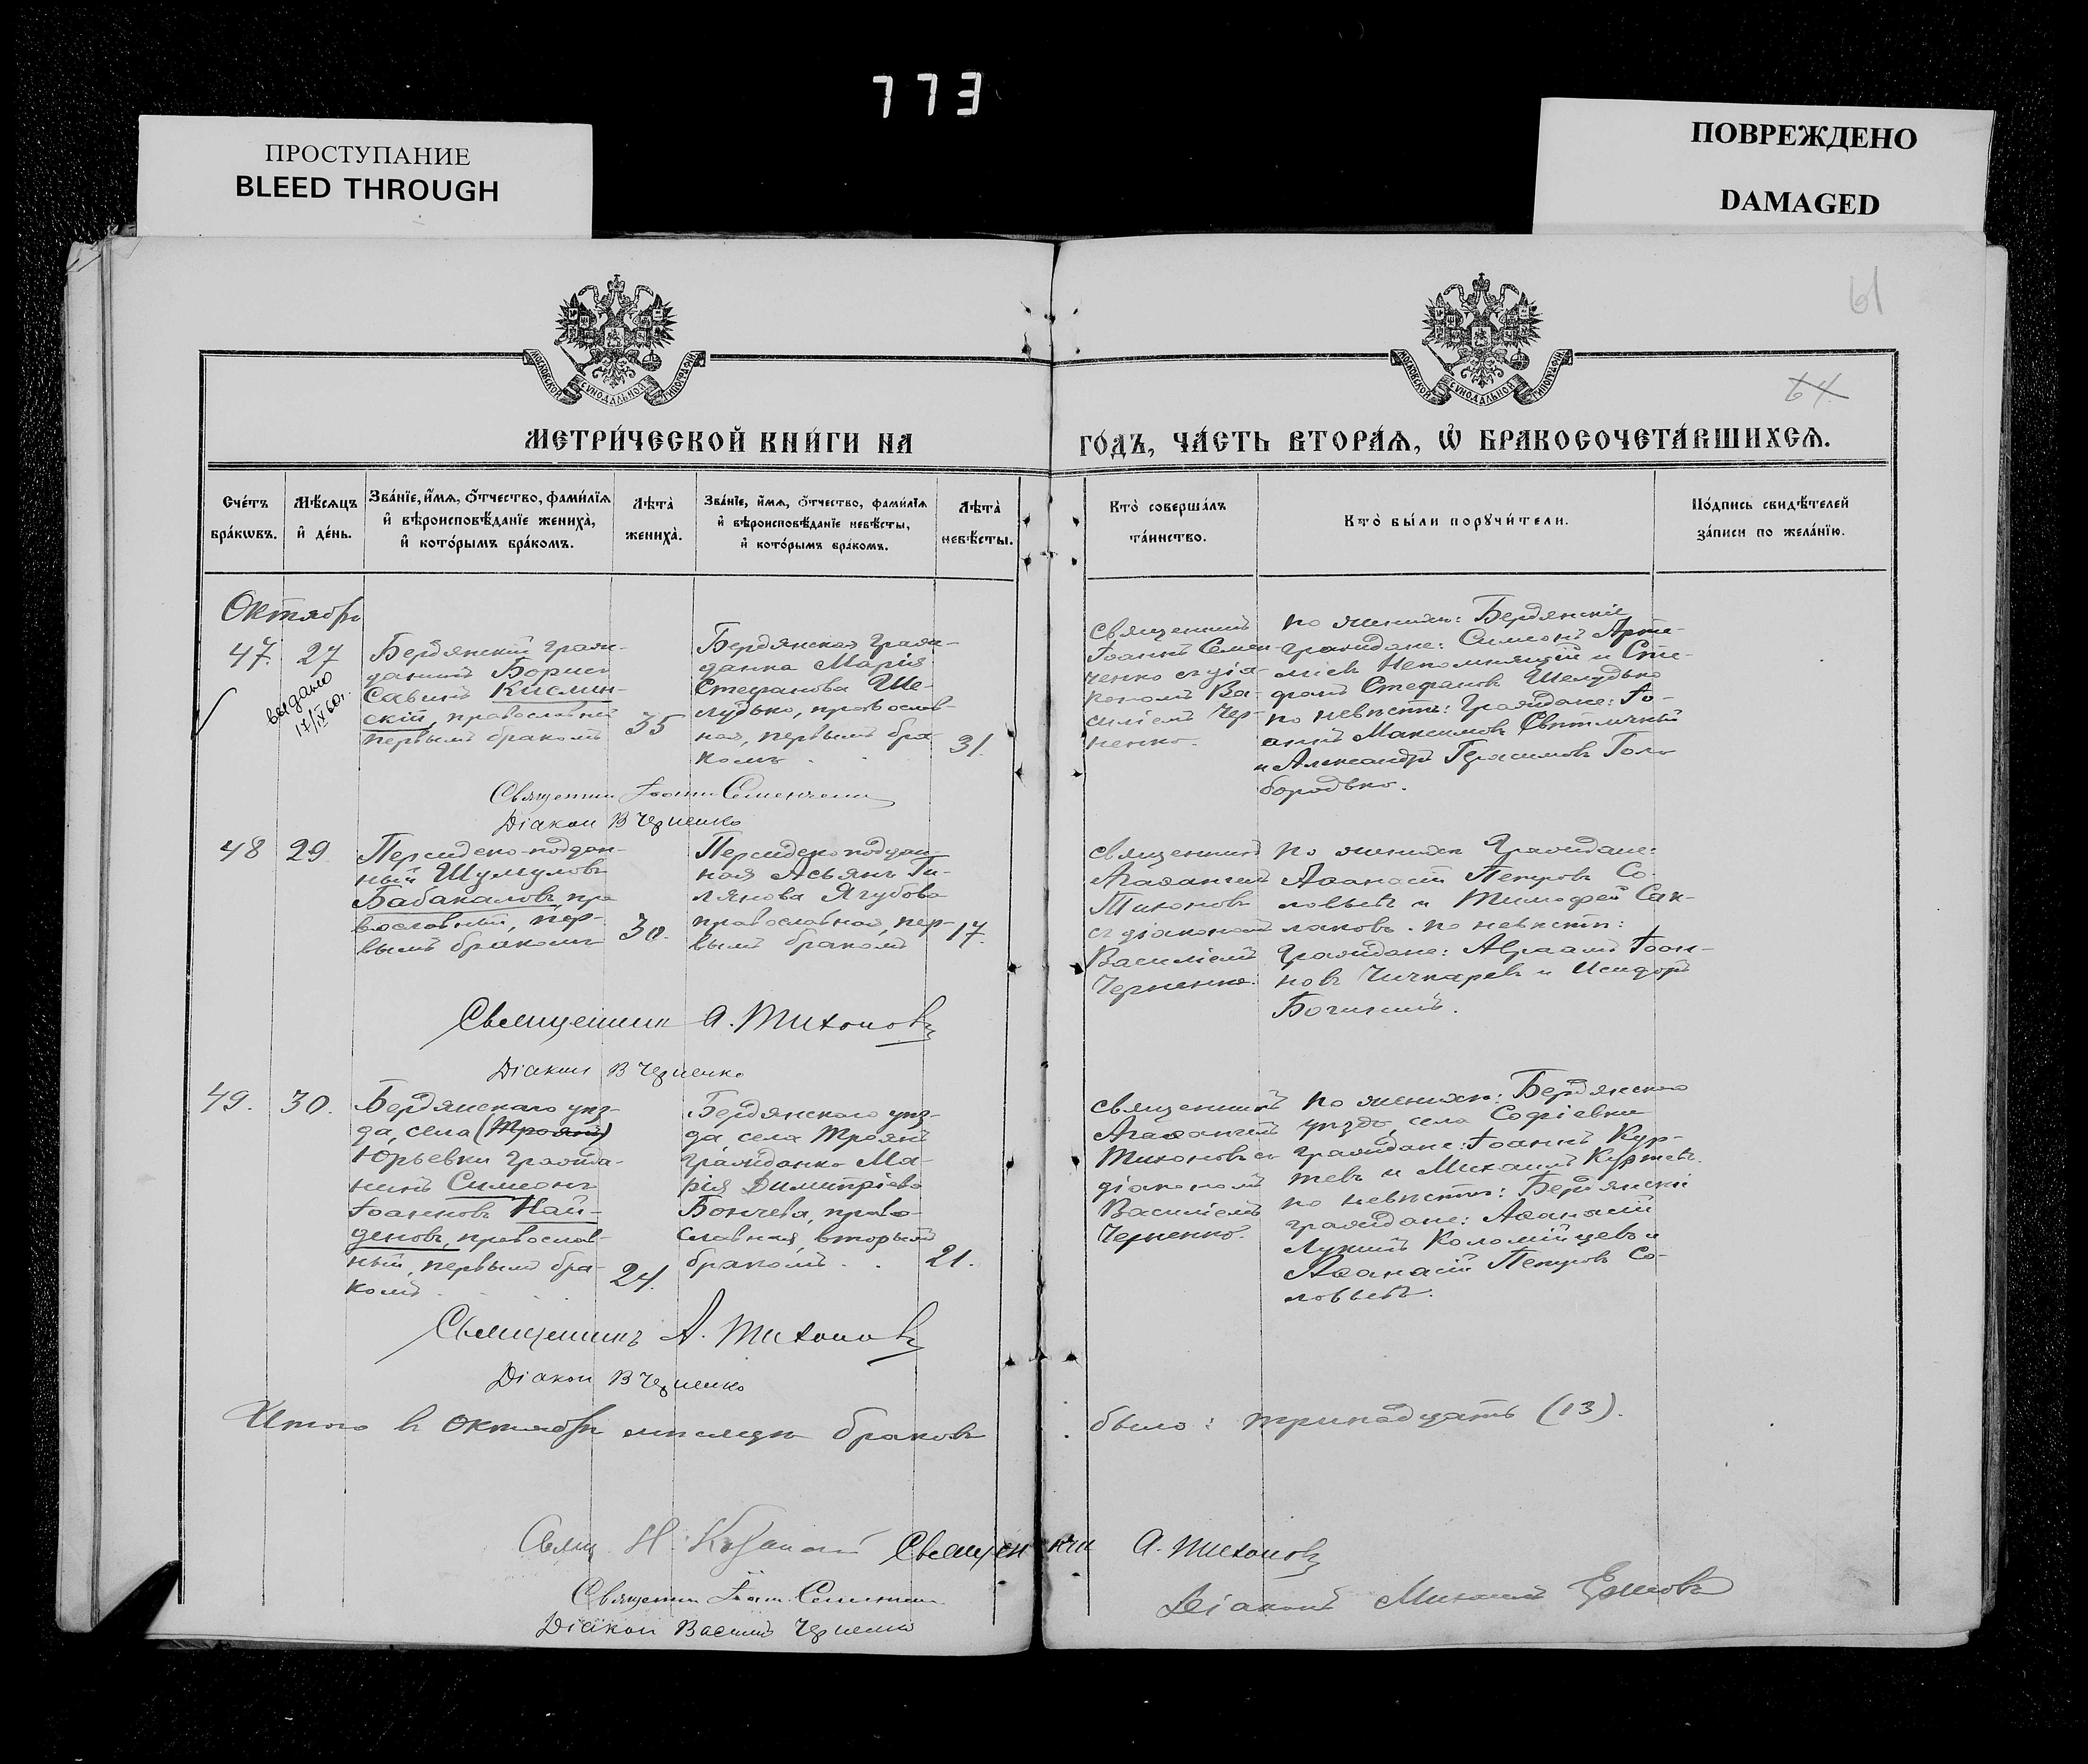 773
ПРОСТУПАНИЕ
BLEED THROUGH
ПОВРЕЖДЕНО
DAMAGED
61
64
МОСКОВСКОЙ СУНОДАЛЬНОЙ ТИПОГРАФІИ
МОСКОВСКОЙ СУНОДАЛЬНОЙ ТИПОГРАФІИ
МЕТРИ́ЧЕСКОЙ КНИ́ГИ НА
ГО́ДЪ, ЧА́СТЬ ВТОРА́Ѧ, Ѡ҆ БРАКОСОЧЕТА́ВШИХСѦ.
Сче́тъ
бра́кѡвъ.
Мѣ́сѧцъ
и҆ де́нь.
Зва́нїе, и҆́мѧ, ѻ҆́тчество, фами́лїѧ
и҆ вѣроисповѣ́данїе жениха̀,
и҆ кото́рымъ бра́комъ.
Лѣ́та̀
жениха̀.
Зва́нїе, и҆́мѧ, ѻ҆́тчество, фами́лїѧ
и҆ вѣроисповѣ́данїе невѣ́сты,
и҆ кото́рымъ бра́комъ.
Лѣ́та̀
невѣ́сты.
Кто̀ соверша́лъ
та́инство.
Кто̀ бы́ли порꙋчи́тели.
По́дпись свидѣ́телей
за́писи по жела́нїю.
Октябрь
47. 27
выдано
17/IX 60г.
Бердянскій граж-
данинъ Борисъ
Савинъ Кислин-
скій, православный
первымъ бракомъ
35
Бердянская граж-
данка Марія
Стефанова Ше-
лудько, православ-
ная, первымъ бра-
комъ
31.
Священникъ
Іоаннъ Семен-
ченко съ діа-
кономъ Ва-
силіемъ Чер-
ненко.
по женихѣ: Бердянскіе
граждане: Симеонъ Арте-
міевъ Непомнящій и Сте-
фанъ Стефановъ Шелудько
по невѣстѣ: Граждане: Іо-
аннъ Максимовъ Свѣтличный
и Александръ Герасимовъ Голо-
бородько.
Священник Іоанн Семенченко
Діакон В Черненко
48 29
Персидско-поддан-
ный Шумуловъ
Бабакаловъ, пра-
вославный, пер-
вымъ бракомъ
30.
Персидско поддан-
ная Асьянъ Ги-
лянова Ягубова
православная, пер-
вымъ бракомъ
17.
Священникъ
Агаѳангелъ
Тихоновъ
съ діакономъ
Василіемъ
Черненко.
по женихѣ Граждане:
Аѳанасій Петровъ Со-
ловьевъ и Тимофей Сак-
лаковъ. по невѣстѣ:
Граждане: Авраамъ Іоан-
новъ Чичкаревъ и Исидоръ
Богинскій.
Священник А. Тихоновъ
Діакон В Черненко
49. 30.
Бердянскаго уѣз-
да, села (Троянъ)
Юрьевки гражда-
нинъ Симеонъ
Іоанновъ Най-
деновъ, православ-
ный, первымъ бра-
комъ
24.
Бердянскаго уѣз-
да села Троянъ
гражданка Ма-
рія Димитріева
Бончева, право-
славная, вторымъ
бракомъ
21.
Священникъ
Агаѳангелъ
Тихоновъ съ
діакономъ
Василіемъ
Черненко.
по женихѣ: Бердянскаго
уѣзда, села Софіевки
граждане: Іоаннъ Кур-
тевъ и Михаилъ Куртевъ.
по невѣстѣ: Бердянскіе
граждане: Аѳанасій
Лукинъ Коломійцевъ и
Аѳанасій Петровъ Со-
ловьевъ.
Священникъ А. Тихоновъ
Діакон В Черненко
Итого въ Октябрѣ мѣсяцѣ браковъ
было: тринадцать (13).
Свящ. Н.
Священник А. Тихоновъ
Священник Іоан. Семенченко
Діакон Василій Черненко
Діаконъ Михаилъ